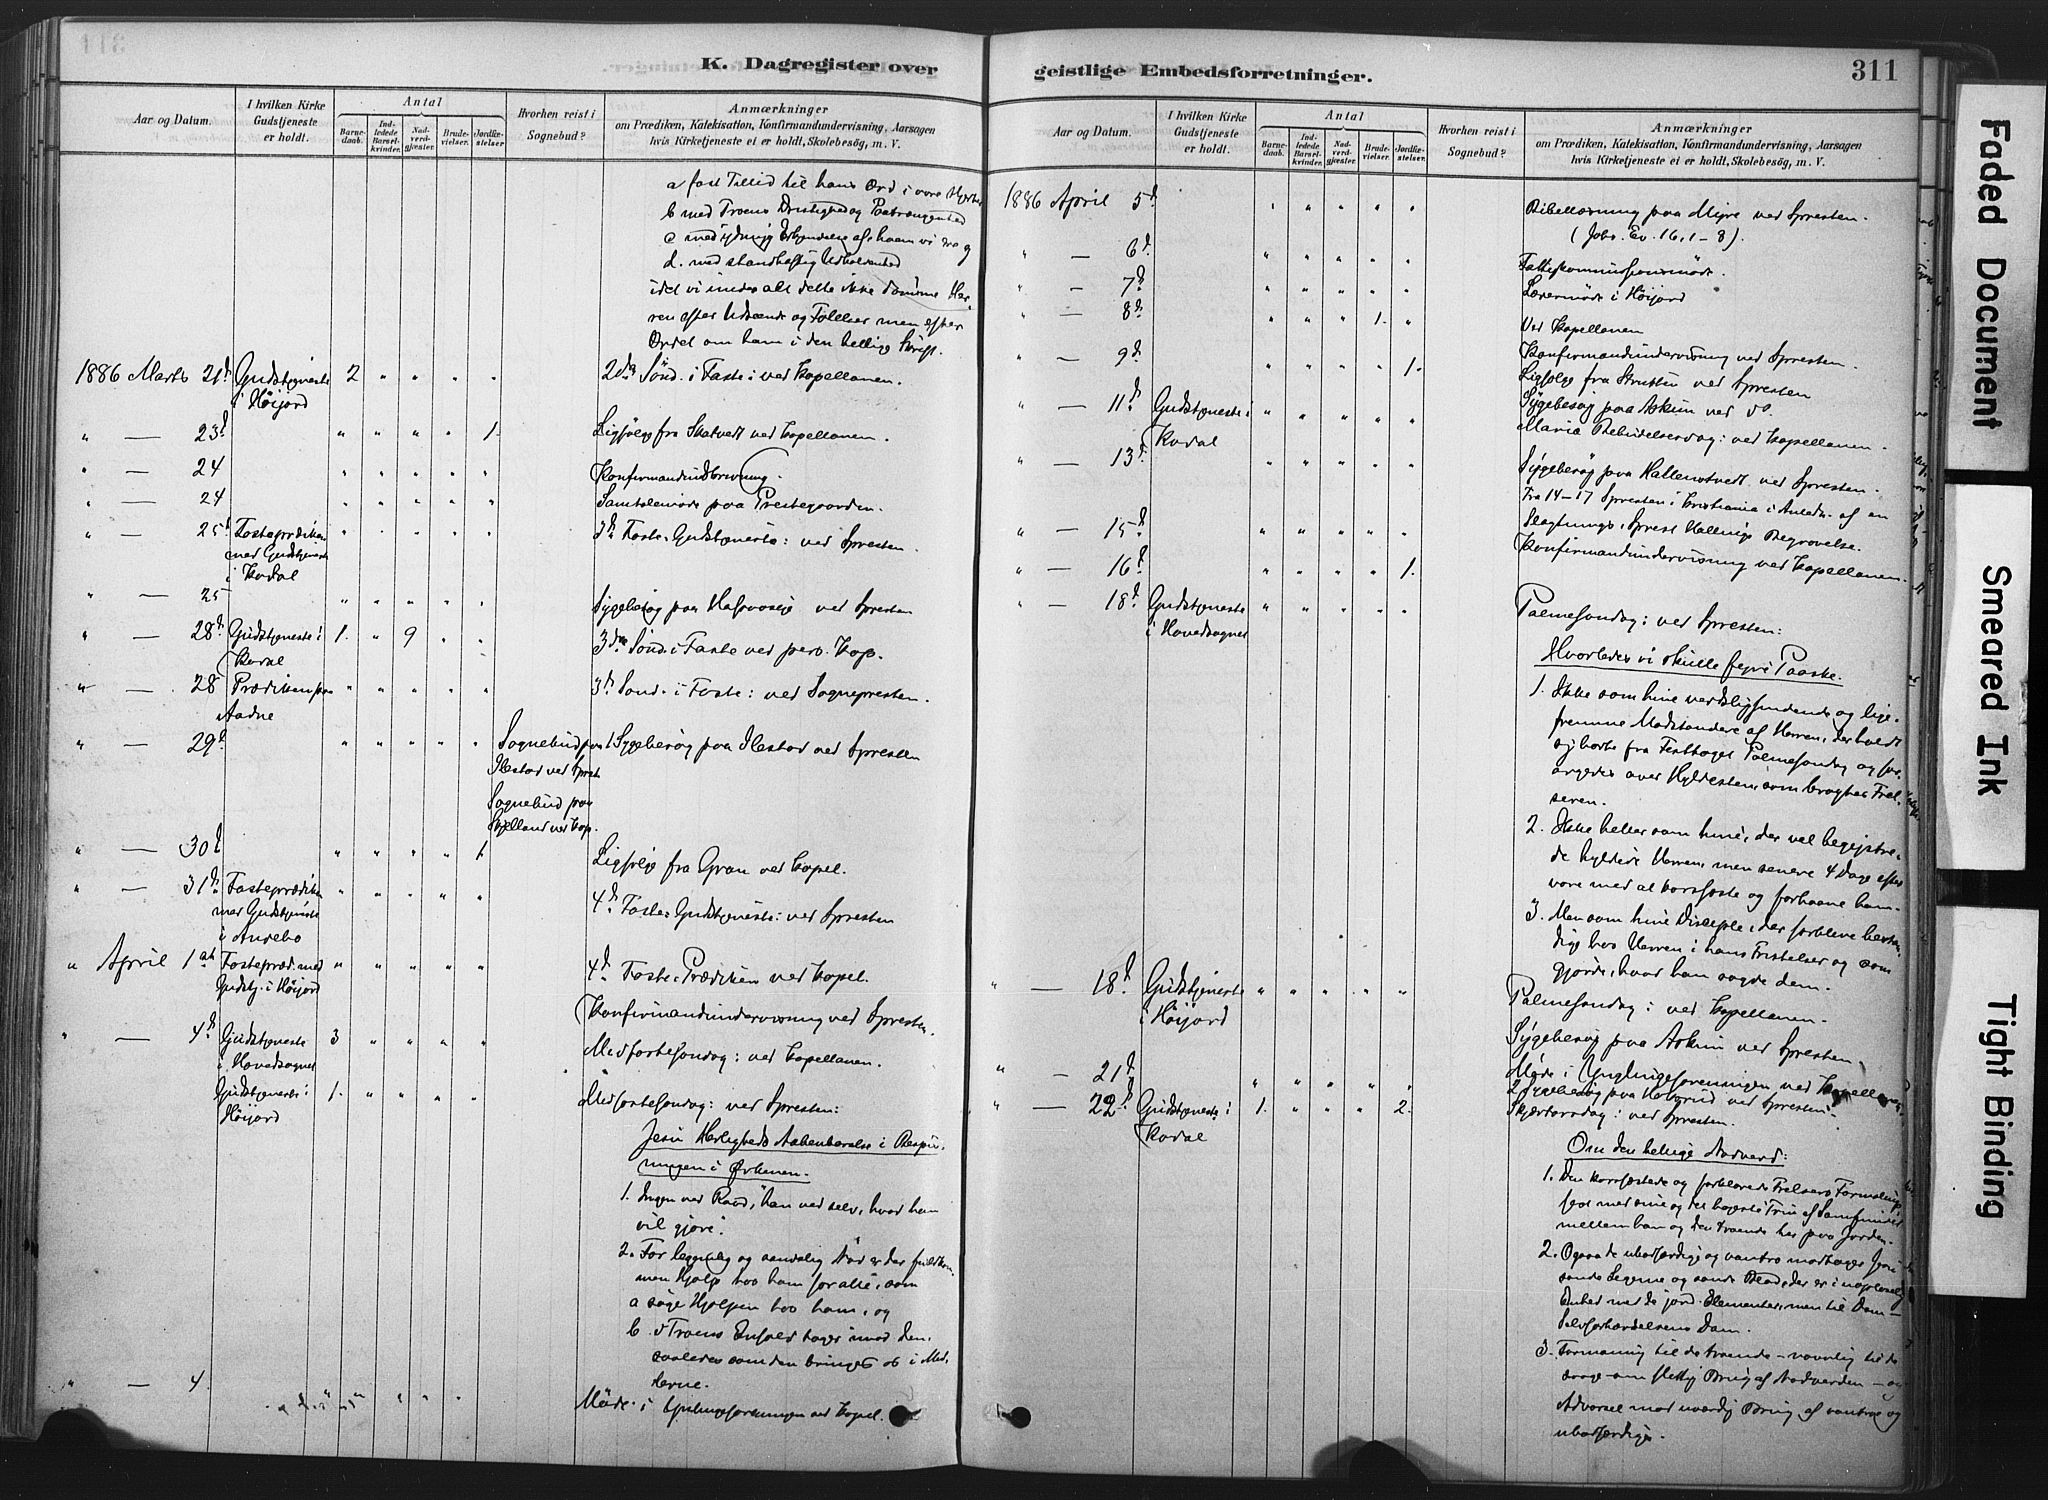 K. Dagregister over
Aar og Datum.
I hvilken Kirke Gudstjeneste er holdt.
Antal
Barnedaab.
Indledede Barselkvinder.
Nadverdgjæster.
Brudevielser.
Jordfæstelser
Hvorhen reist i Sognebud?
Anmærkninger
om Prædiken, Katekisation, Konfirmandundervisning, Aarsagen
hvis Kirketjeneste ei er holdt, Skolebesøg, m. V.
a fast Tillid til hans Ord i vore Hjerter
b med Troens Dristighed og Paatrængenhed
c med ydmyg Erkjendelse af, hvem vi ere og
d. med standhaftig Udholdenhed
idet vi under alt dette ikke dømme Her-
ren efter Udseende og Følelser men efter
Ordet om ham i den hellige Skrift.
1886 Marts 21d Gudstjeneste i Høijord 2 " " " " 2den Sønd. i Faste: ved Kapellanen.
" — 23d " " " " 1. Ligfølge fra Skatvedt ved Kapellanen.
" — 24 " " " " " Konfirmandundervisning.
" — 24 " " " " " Samtalemøde paa Prestegaarden.
" — 25d Fasteprædiken med Gudstjeneste i Kodal " " " " " 3d Faste-Gudstjeneste: ved Spresten.
" — 25 " " " " " Sygebesøg paa ved Spresten
" — 28d Gudstjeneste i Kodal 1. " 9 " " 3die Sønd. i Faste ved pers. Kap.
" — 28 Prædiken paa Aadne " " " " " 3d Sønd. i Faste: ved Sognepresten.
" — 29d " " " " " Sognebud paa Ilestad ved Sprest. Sygebesøg paa Ilestad ved Spresten
Sognebud paa
Skjelland ved Kap.
" — 30d " " " " 1 Ligfølge fra Gran ved Kapel.
" — 31d Fasteprædiken med Gudstjeneste i Andebo " " " " " 4d Faste-Gudstjeneste: ved Spresten
" April 1st Fastepræd. med Gudstj. i Høijord " " " " " 4d Faste-Prædiken ved Kapel.
Konfirmandundervisning ved Spresten.
" — 4d Gudstjeneste i Hovedsognet 3 " " " " Midfastesøndag: ved Kapellanen.
Gudstjeneste i Høijord 1. " " " " Midfastesøndag: ved Spresten:
Jesu Herligheds Aabenbarelse i Bespis-
ningen i Ørkenen.
1. Ingen ved Raad, "han ved selv, hvad han
vil gjøre".
2. For legemlig og aandelig Nød er der fuldkom-
men Hjelp hos ham for alle, som
a søge Hjelpen hos ham, og
b. i Troens Enfold tager imod den,
saaledes som den bringes os i Mid-
lerne.
" — 4. " " " Møde i Ynglingeforeningen ved Kapel.
geistlige Embedsforretninger.
311
Aar og Datum.
I hvilken Kirke Gudstjeneste er holdt.
Antal
Barnedaab.
Indledede Barselkvinder.
Nadverdgjæster.
Brudevielser.
Jordfæstelser.
Hvorhen reist i Sognebud?
Anmærkninger
om Prædiken, Katekisation, Konfirmandundervisning, Aarsagen
hvis Kirketjeneste ei er holdt, Skolebesøg, m. V.
1886 April 5d " " " " " Bibellæsning paa Myre ved Spresten.
(Joh. Ev. 16, 1-8).
" — 6d " " " " " Fattigkommissionsmøde.
" — 7d " " " " " Lærermøde i Høijord
" — 8d " " " 1. " Ved Kapellanen
" — 9d " " " " 1. Konfirmandundervisning ved Spresten.
Ligfølge fra ved Spresten
Sygebesøg paa Askim ved do.
" — 11d Gudstjeneste i Kodal " " " " " Mariæ Bebudelsesdag: ved Kapellanen.
" — 13d " " " " " Sygebesøg paa Hallenstvedt ved Spresten.
Fra 14-17 Spresten i Kristiania i Anledn. af en
" — 15d " " " " " Slægtnings, Sprest Begravelse.
" — 16d " " " " 1. Konfirmandundervisning ved Kapellanen.
" — 18d Gudstjeneste i Hovedsognet " " " " " Palmesøndag: ved Spresten:
Hvorledes vi skulle fejre Paaske.
1. Ikke som hine verdsligsindende og lige-
fremme Modstandere af Herren, der holdt
sig borte fra Festtoget Palmesøndag og for-
argedes over Hyldesten, som bragtes Frel-
seren.
2. Ikke heller som hine, der vel begejstre-
de hyldede Herren, men senere 4 Dage efter
vare med at korsfæste og forhaane ham.
3. Men som hine Disciple, der forbleve bestan-
dige hos Herren i hans Fristelser og som
gjorde, hvad han sagde dem.
" — 18d Gudstjeneste i Høijord " " " " " Palmesøndag: ved Kapellanen.
Sygebesøg paa Askim ved Spresten.
" — 21d " " " " " Møde i Ynglingeforeningen ved Kapellanen.
2 Sygebesøg paa ved Spresten.
" — 22d Gudstjeneste i Kodal 1. " " " 2. Skjærtorsdag: ved Spresten.
Om den hellige Nadverd:
1. Den korsfæstede og forklarede Frelsers
med sine og det højeste Trin af Samfundet
mellem ham og den troende her paa Jorden.
2. Ogsaa de ubodfærdige og vantro modtager Jesu
sande Legeme og sande Blod, der er i uopløselig
Enhed med de jord. Elementer, men til Dom —
Selvforhærdelsens Dom.
3. Formaning til de troende — navnlig til de
svage — om flittig Brug af Nadverden — og
Advarsel mod uværdig Brug af vantroe og
ubodfærdige.
Faded Document
Smeared Ink
Tight Binding